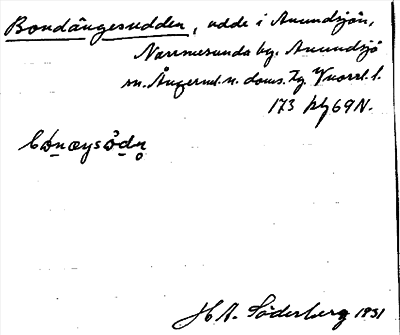 Bondängesudden, udde i Anundsjön,
Norrmesunda by. Anundsjö
sn. Ångerml. n. doms. tg. Vnorrl. l.
173 69 N.
H A. Söderberg 1931